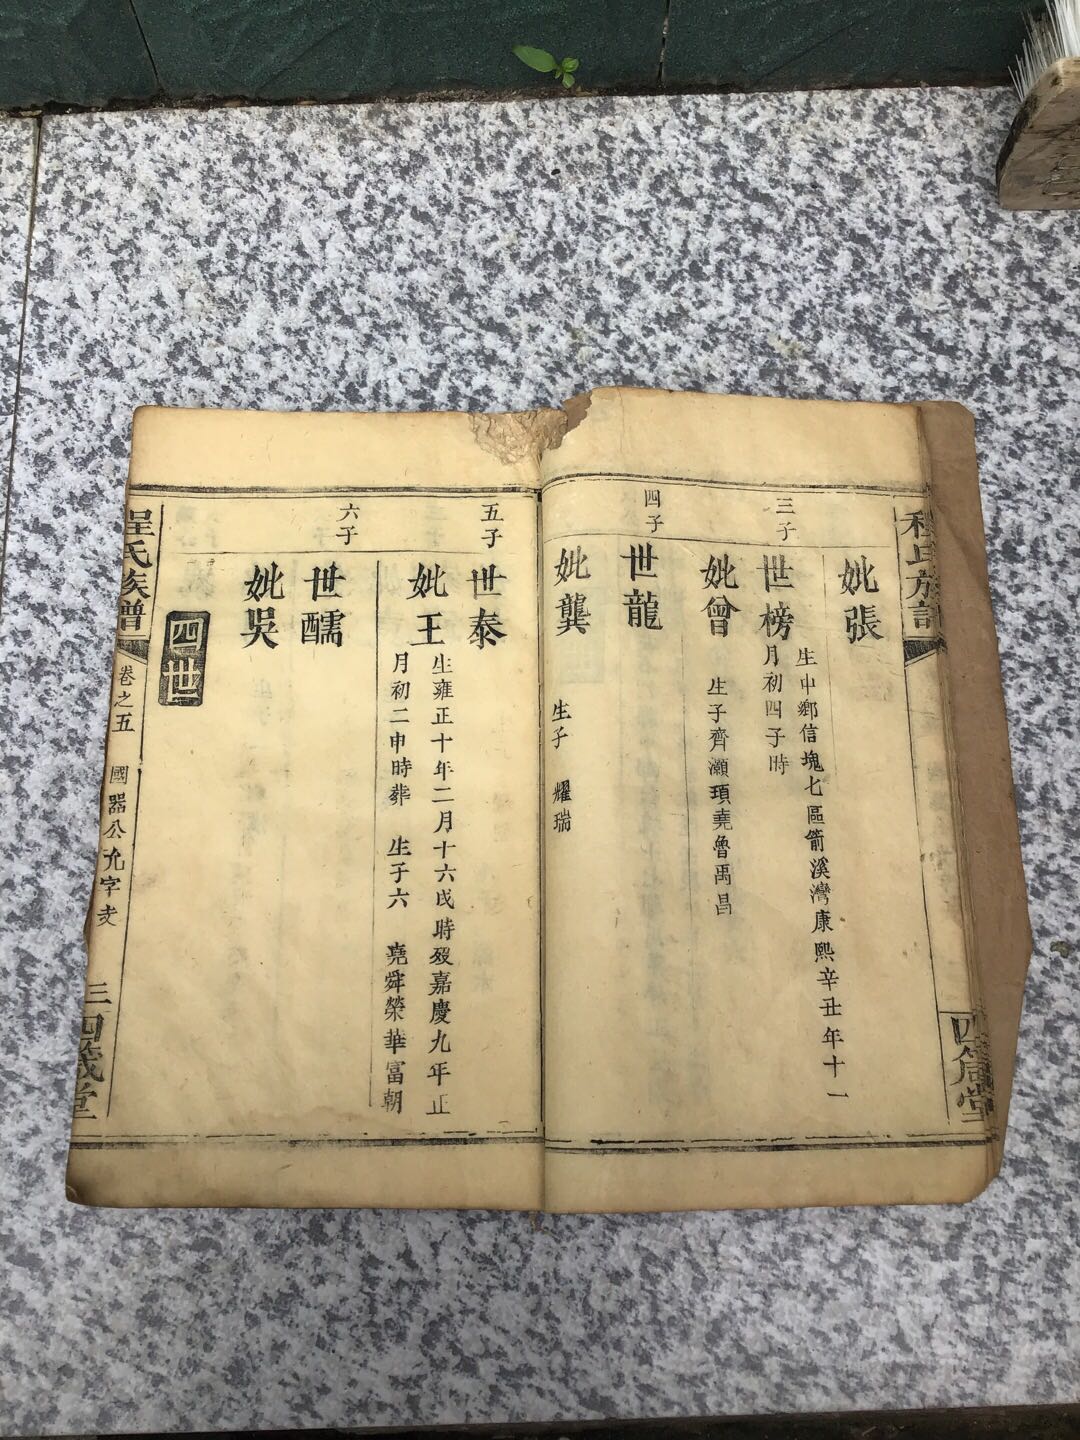 妣張
三子
世榜
生中鄉信塊七區箭溪灣康熙辛丑年十一
月初四子時
妣曾
生子齊灝頊堯魯禹昌
四子
世龍
妣龔
生子 耀瑞
五子
世泰
妣王
生雍正十年二月十六戌時歿嘉慶九年正
月初二申時葬 生子六 堯舜榮華富朝
六子
世醹
妣吳
四世
程氏族譜
卷之五
國器公允字支
三
四箴堂